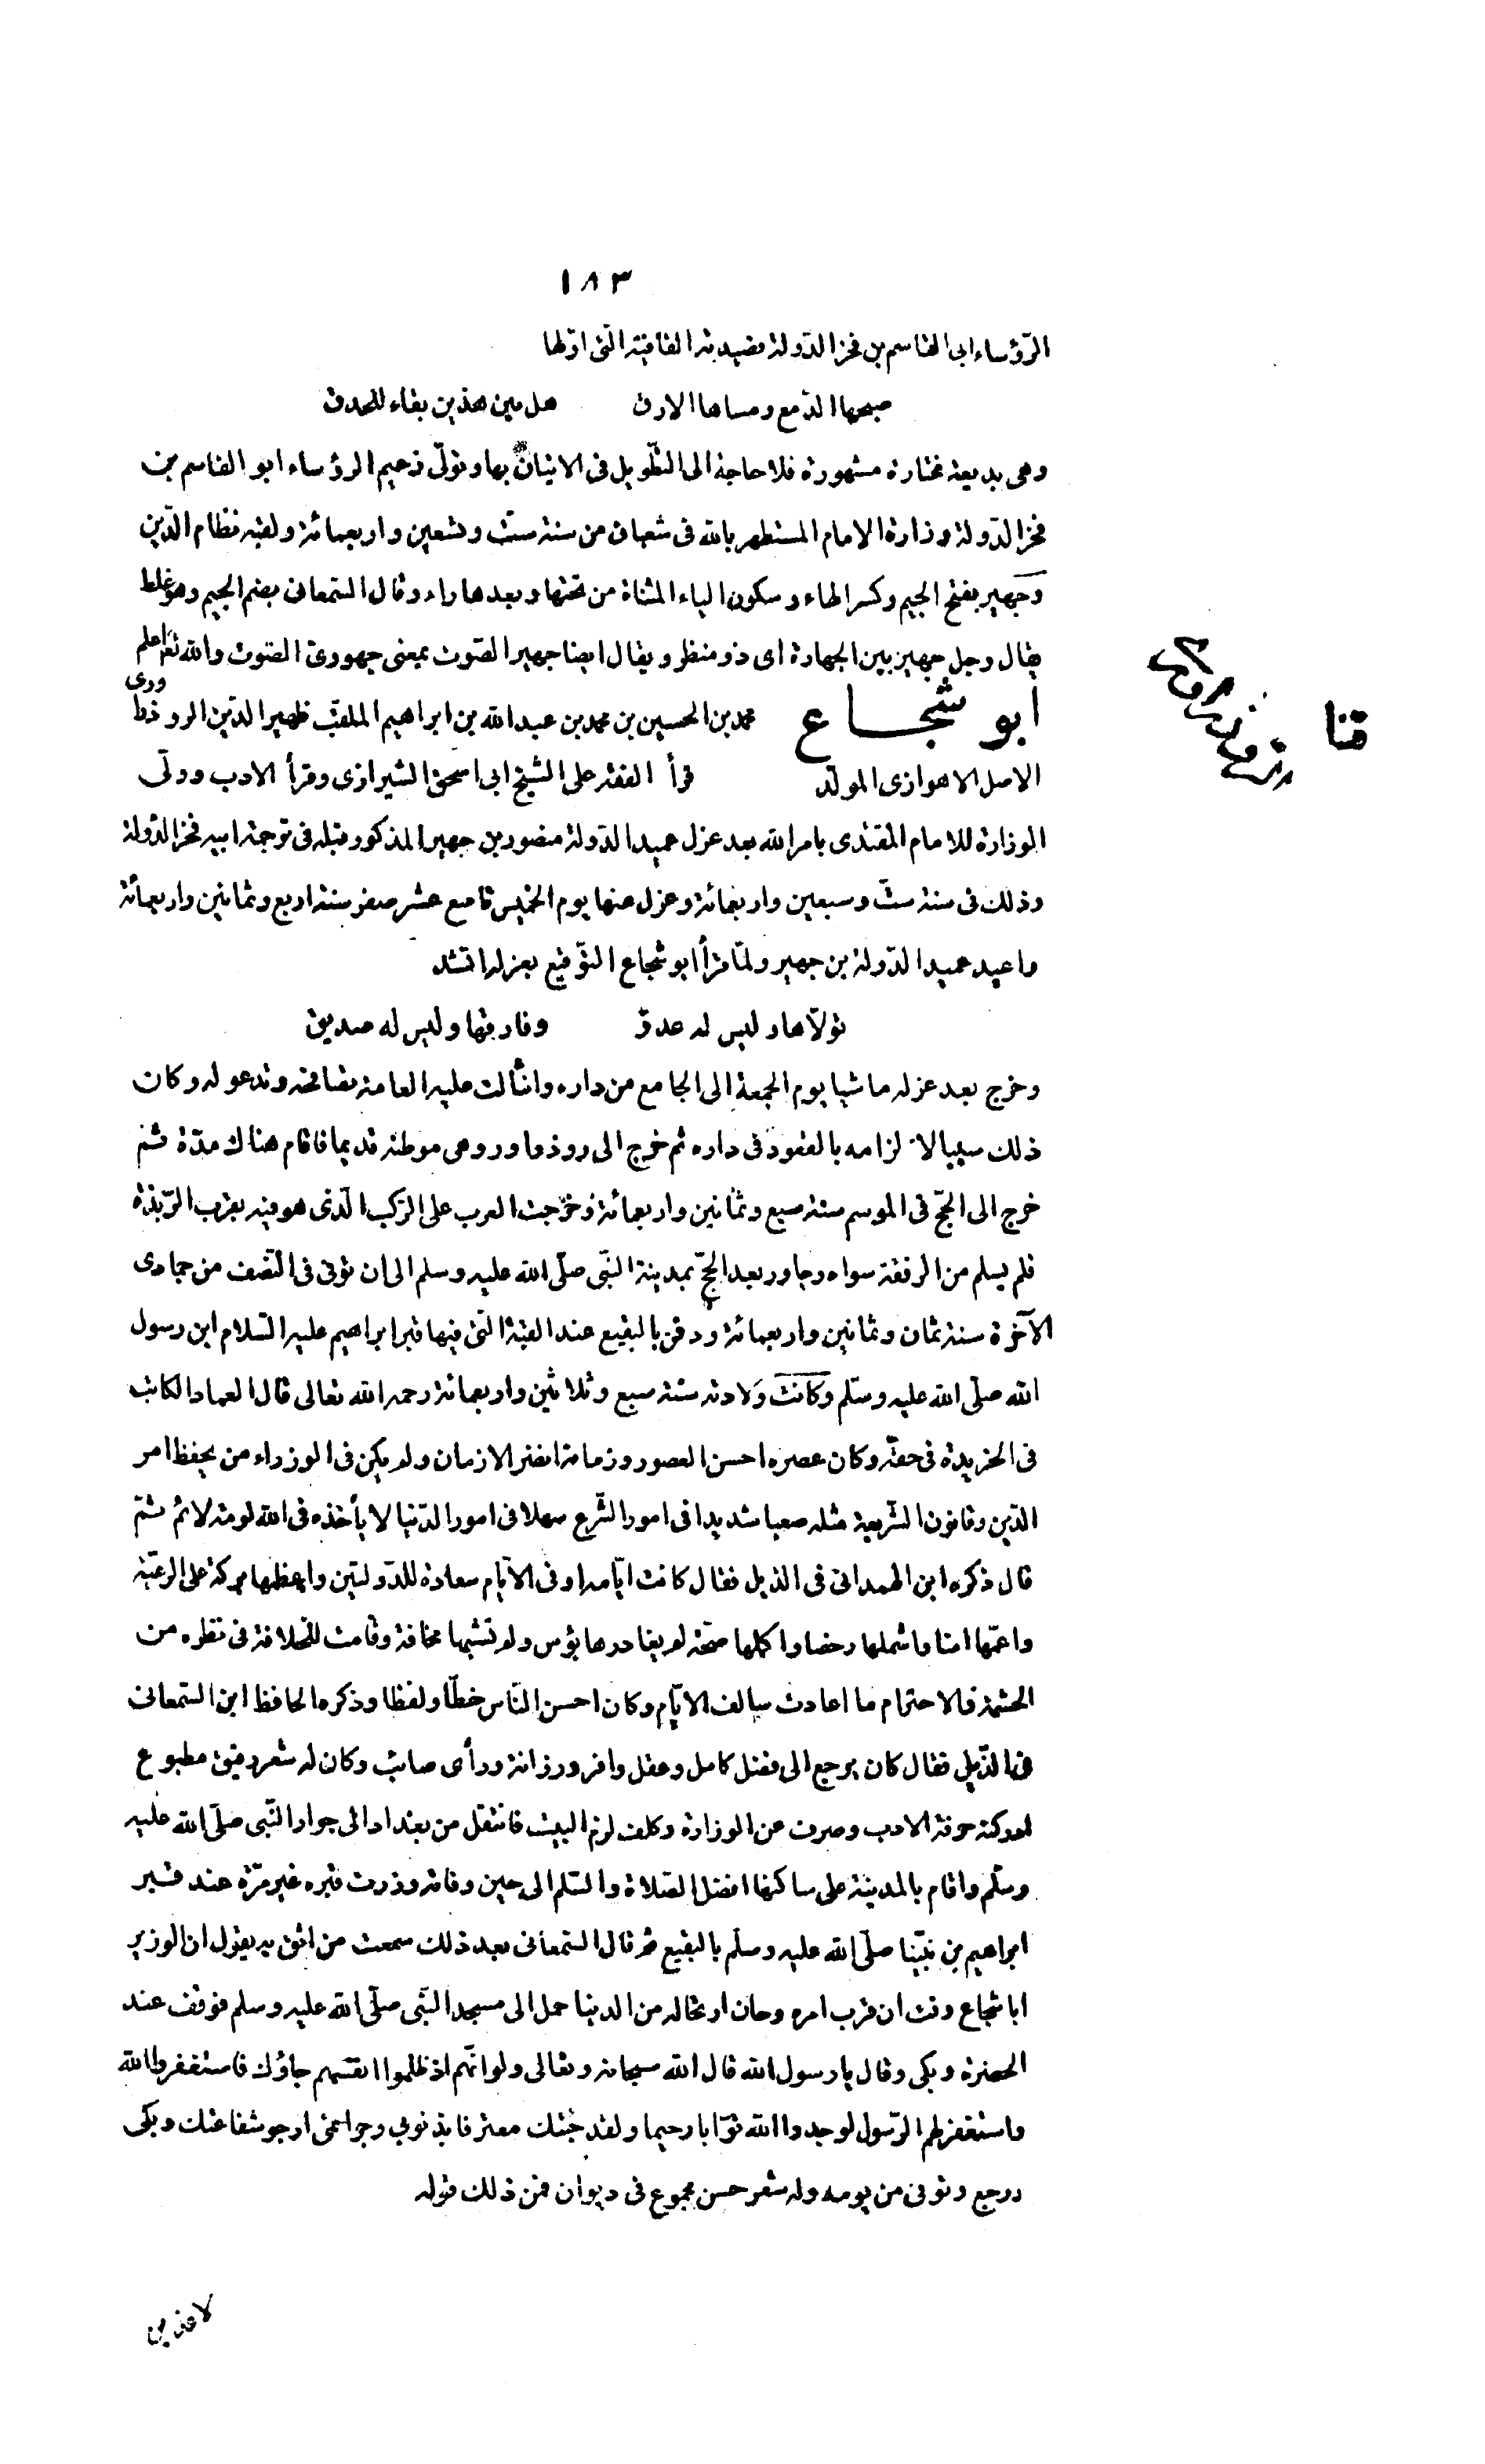 ١٨٣
الرّؤساء ابى القاسم بن فخر الدّولة قصيدته القافيّة الّتى اوّلها
صبحها الدّمع ومساها الارق هل بين هذين بقاء للحدق
وهى بديعة مختارة مشهورة فلا حاجة الى التّطويل فى الاتيان بها وتولّى زعيم الرؤساء ابو القاسم بن
فخر الدّولة وزارة الامام المستظهر بالله فى شعبان من سنة ستّ وتسعين واربعمائة ولقبه نظام الدّين
وجهير بفتح الجيم وكسر الهاء وسكون الياء المثناة من تحتها وبعدها راء وقال السّمعانى بضم الجيم وهو غلط
يقال رجل جهير بين الجهارة اى ذو منظر ويقال ايضا جهير الصّوت بمعنى جهورىّ الصّوت والله تعا اعلم
ابو شجاع محمد بن الحسين بن محمد بن عبد الله بن ابراهيم الملقب ظهير الدّين الروذ
ورى
الاصل الاهوازى المولد قرأ الفقه على الشيخ ابى اسحق الشيرازى وقرأ الادب وولّى
الوزارة للامام المقتدى بامر الله بعد عزل عميد الدّولة منصور بن جهير المذكور قبله فى ترجمة ابيه فخر الدّولة
وذلك فى سنة ستّ وسبعين واربعمائة وعزل عنها يوم الخميس تاسع عشر صفر سنة اربع وثمانين واربعمائة
واعيد عميد الدّولة بن جهير ولمّا قرأ ابو شجاع التّوقيع بعزله انشد
تولّاها وليس له عدوّ وفارقها وليس له صديق
وخرج بعد عزله ماشيا يوم الجمعة الى الجامع من داره وانثالت عليه العامة تصافحه وتدعو له وكان
ذلك سببا لالزامه بالقعود فى داره ثم خرج الى روذراور وهى موطنه قديما فاقام هناك مدّة ثم
خرج الى الحجّ فى الموسم سنة سبع وثمانين واربعمائة وخرجت العرب على الرّكب الّذى هو فيه بقرب الرّبذة
فلم يسلم من الرفقة سواه وجاور بعد الحجّ بمدينة النّبى صلّى الله عليه وسلم الى ان توفى فى النّصف من جمادى
الآخرة سنة ثمان وثمانين واربعمائة ودفن بالبقيع عند القبّة الّتى فيها قبر ابراهيم عليه السّلام ابن رسول
الله صلّى الله عليه وسلّم وكانت ولادته سنة سبع وثلاثين واربعمائة رحمه الله تعالى قال العماد الكاتب
فى الخريدة فى حقّه وكان عصره احسن العصور وزمانه انضر الازمان ولم يكن فى الوزراء من يحفظ امر
الدّين وقانون الشّريعة مثله صعبا شديدا فى امور الشّرع سهلا فى امور الدّنيا لا يأخذه فى الله لومة لائم ثمّ
قال ذكره ابن الهمدانى فى الذيل فقال كانت ايّامه اوفى الايّام سعادة للدّولتين واعظمها بركة على الرعيّة
واعمّها امنا واشملها رخصا واكملها صحّة لم يغادرها بؤس ولم تشبها مخافة وقامت للخلافة فى نظره من
الحشمة والاحترام ما اعادت سالف الايّام وكان احسن النّاس خطّا ولفظا وذكره الحافظ ابن السّمعانى
فى الذّيل فقال كان يرجع الى فضل كامل وعقل وافر ورزانة ورأى صائب وكان له شعر رقيق مطبوع
ادركته حرفة الادب وصرف عن الوزارة وكلف لزم البيت فانتقل من بغداد الى جوار النّبى صلّى الله عليه
وسلّم واقام بالمدينة على ساكنها افضل الصّلاة والسّلم الى حين وفاته وزرت قبره غير مرّة عند قبر
ابراهيم بن نبيّنا صلّى الله عليه وسلّم بالبقيع ثم قال السّمعانى بعد ذلك سمعت من اثق به يقول ان الوزير
ابا شجاع وقت ان قرب امره وحان ارتحاله من الدنيا حمل الى مسجد النّبى صلّى الله عليه وسلم فوقف عند
الحضرة وبكى وقال يا رسول الله قال الله سبحانه وتعالى ولو انّهم اذ ظلموا انفسهم جاؤك فاستغفروا الله
واستغفر لهم الرّسول لوجدوا الله توّابا رحيما ولقد جئتك معترفا بذنوبى وجرائمى ارجو شفاعتك وبكى
ورجع وتوفى من يومه وله شعر حسن مجموع فى ديوان فمن ذلك قوله
لاعذبن